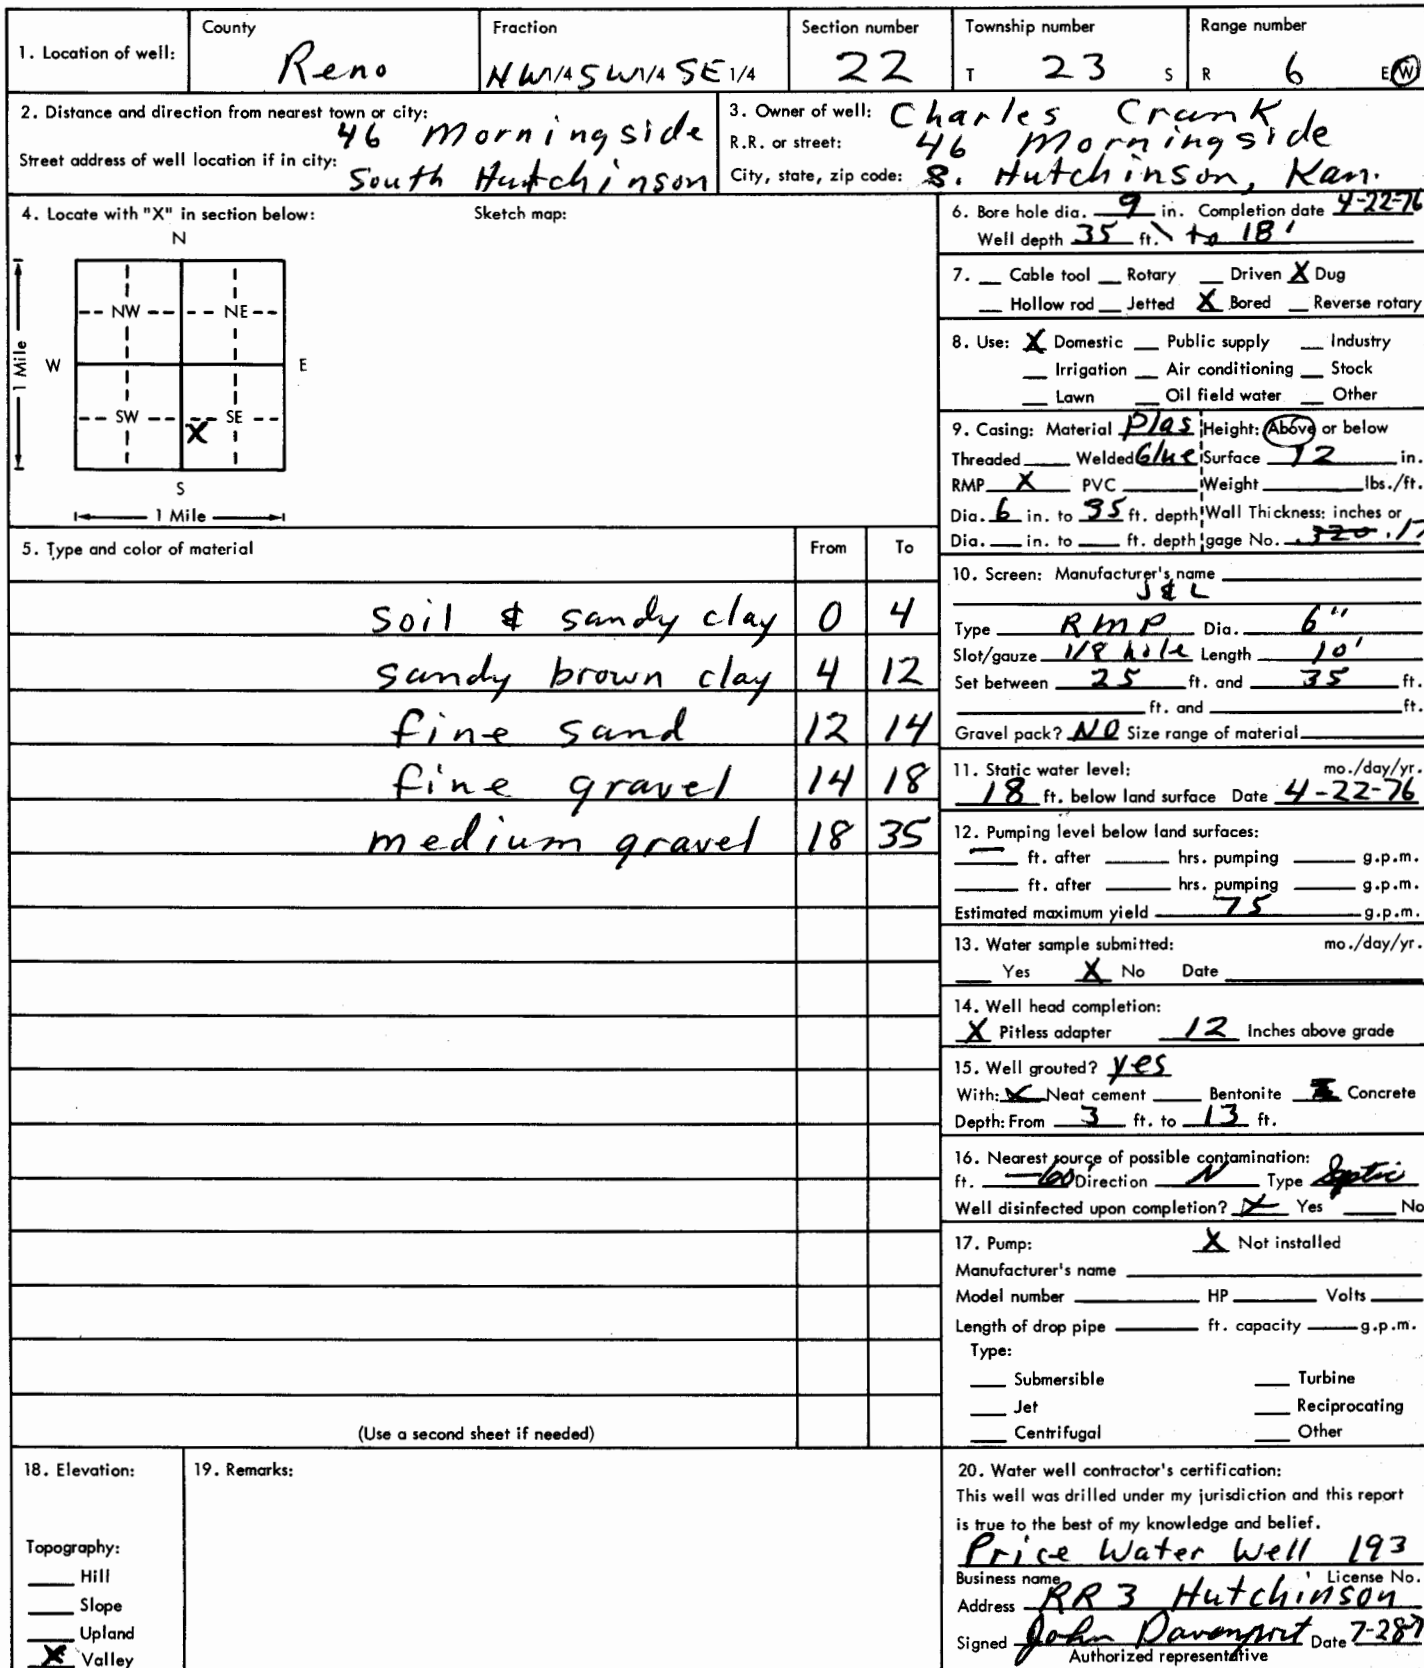 1. Location of well:
County
Reno
Fraction
NW1/4 SW1/4 SE 1/4
Section number
22
Township number
T 23 S
Range number
R 6 E W
2. Distance and direction from nearest town or city:
46 Morningside
Street address of well location if in city:
South Hutchinson
3. Owner of well: Charles Crank
R.R. or street: 46 Morningside
City, state, zip code: S. Hutchinson, Kan.
4. Locate with "X" in section below:
Sketch map:
N
NW NE
W E
SW SE
X
S
1 Mile
1 Mile
5. Type and color of material From To
soil & sandy clay 0 4
sandy brown clay 4 12
fine sand 12 14
fine gravel 14 18
medium gravel 18 35
(Use a second sheet if needed)
6. Bore hole dia. 9 in. Completion date 4-22-76
Well depth 35 ft. to 18'
7. __ Cable tool __ Rotary __ Driven X Dug
__ Hollow rod __ Jetted X Bored __ Reverse rotary
8. Use: X Domestic __ Public supply __ Industry
__ Irrigation __ Air conditioning __ Stock
__ Lawn __ Oil field water __ Other
9. Casing: Material Plas Height: Above or below
Threaded ___ Welded Glue Surface 12 in.
RMP X PVC ___ Weight ___ lbs./ft.
Dia. 6 in. to 35 ft. depth Wall Thickness: inches or
Dia. ___ in. to ___ ft. depth gage No. .320 .17
10. Screen: Manufacturer's name
J & L
Type RMP Dia. 6"
Slot/gauze 1/8 hole Length 10'
Set between 25 ft. and 35 ft.
___ ft. and ___ ft.
Gravel pack? NO Size range of material
11. Static water level: mo./day/yr.
18 ft. below land surface Date 4-22-76
12. Pumping level below land surfaces:
___ ft. after ___ hrs. pumping ___ g.p.m.
___ ft. after ___ hrs. pumping ___ g.p.m.
Estimated maximum yield 75 g.p.m.
13. Water sample submitted: mo./day/yr.
__ Yes X No Date
14. Well head completion:
X Pitless adapter 12 Inches above grade
15. Well grouted? yes
With: X Neat cement ___ Bentonite ___ Concrete
Depth: From 3 ft. to 13 ft.
16. Nearest source of possible contamination:
ft. 60 Direction N Type Septic
Well disinfected upon completion? X Yes ___ No
17. Pump: X Not installed
Manufacturer's name
Model number ___ HP ___ Volts
Length of drop pipe ___ ft. capacity ___ g.p.m.
Type:
__ Submersible __ Turbine
__ Jet __ Reciprocating
__ Centrifugal __ Other
18. Elevation:
Topography:
__ Hill
__ Slope
__ Upland
X Valley
19. Remarks:
20. Water well contractor's certification:
This well was drilled under my jurisdiction and this report
is true to the best of my knowledge and belief.
Price Water Well 193
Business name License No.
Address RR 3 Hutchinson
Signed John Davenport Date 7-28-7
Authorized representative